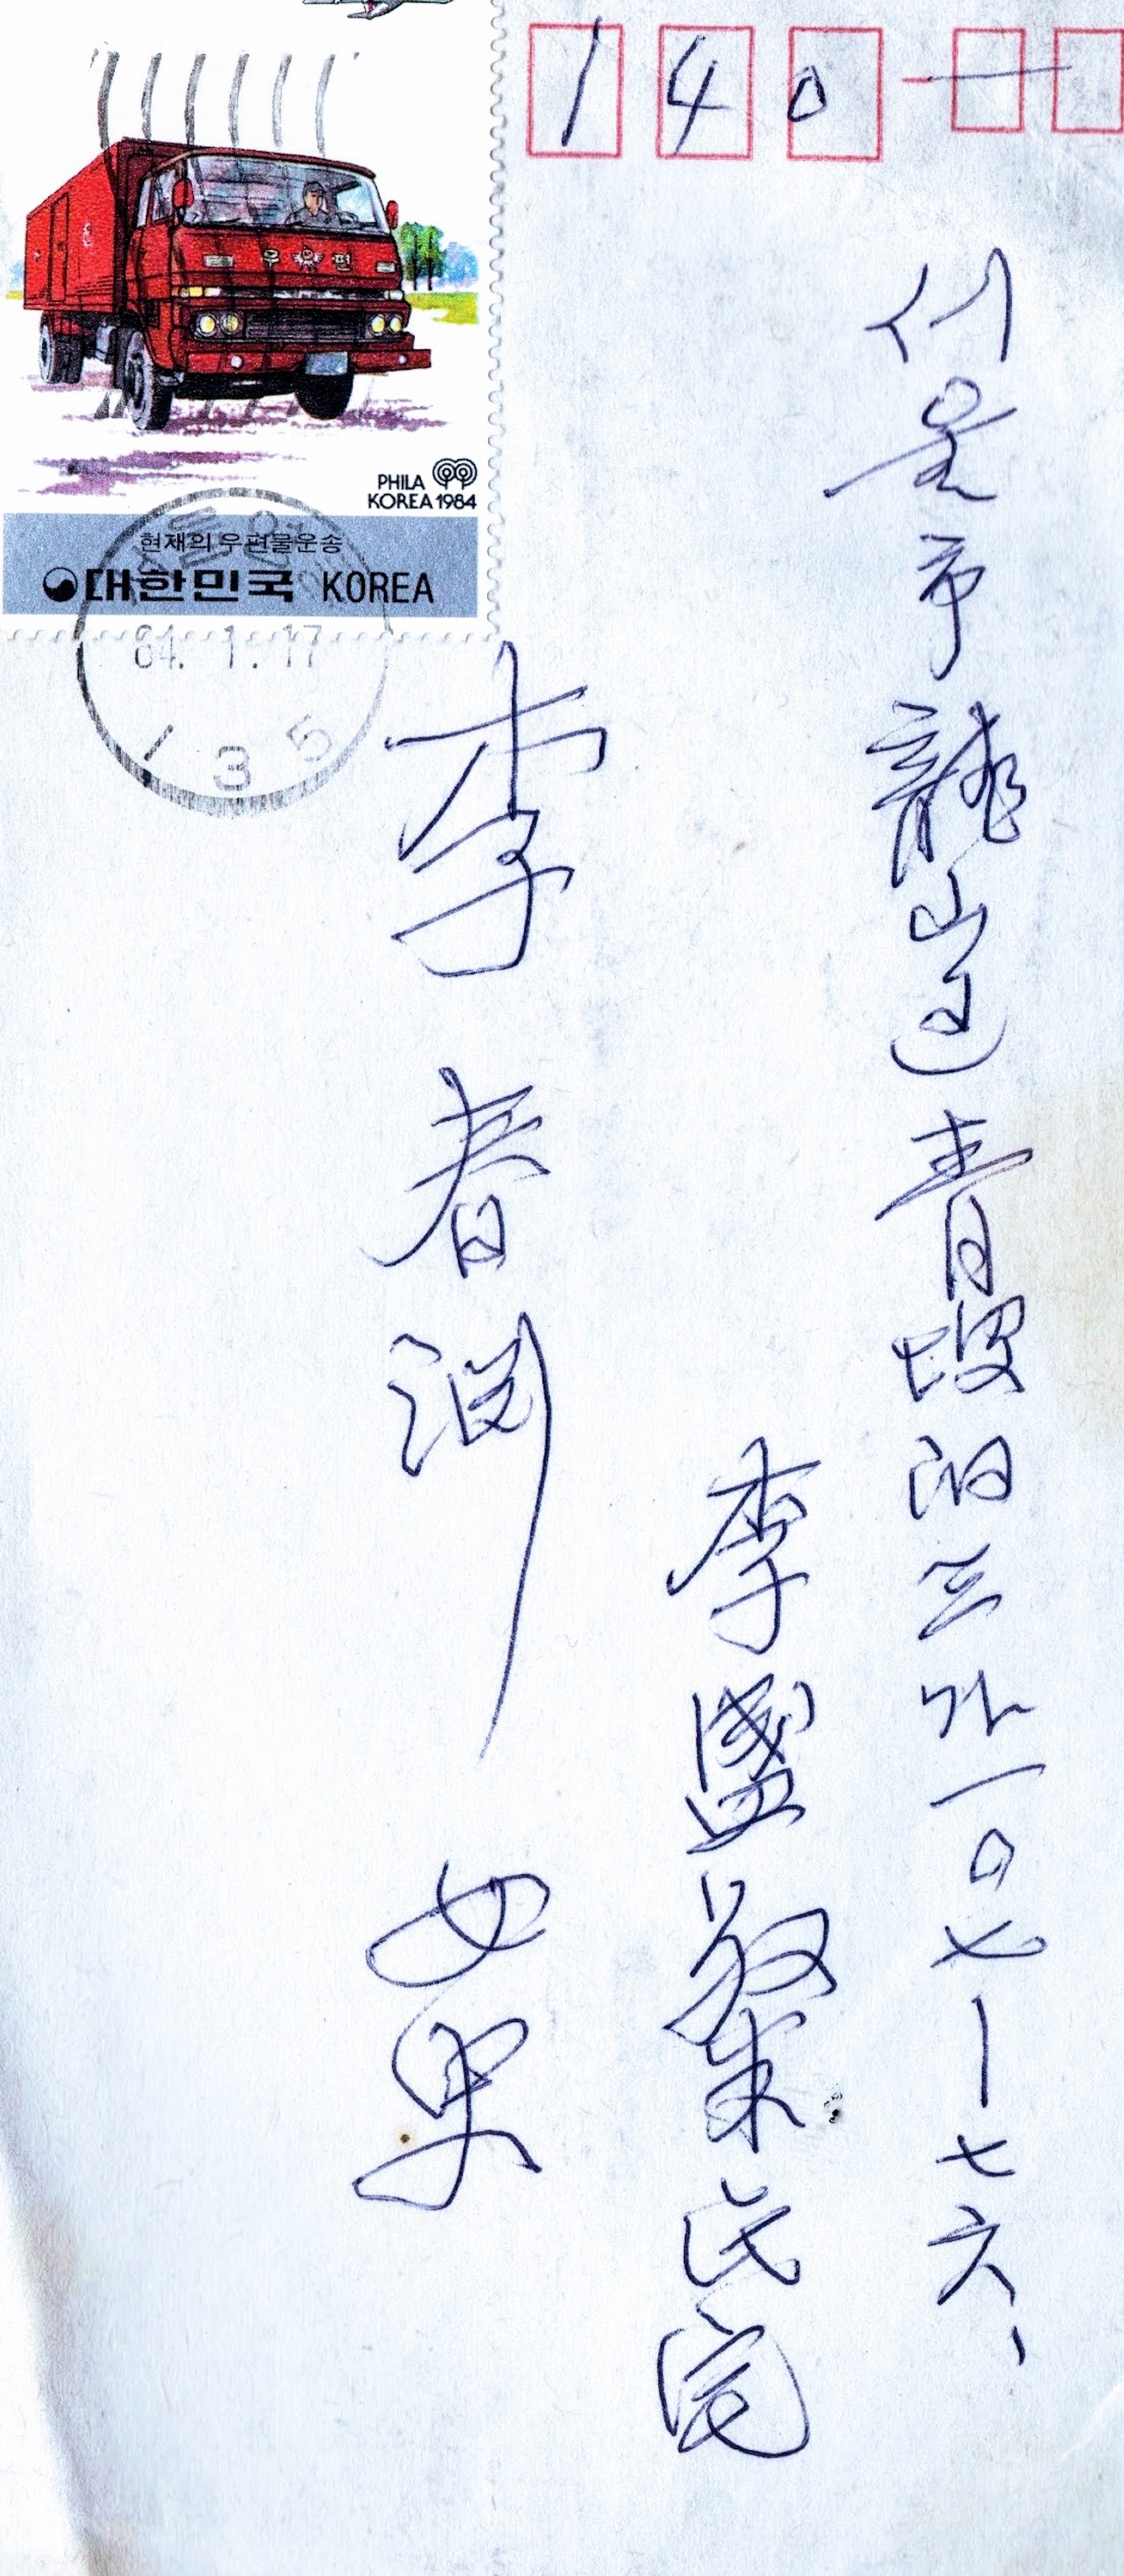 140-
서울市龍山区青坡洞三가一○七-七六、
李盛馥氏宅
李春渊 女史
우편
PHILA
KOREA 1984
현재의 우편물운송
대한민국 KOREA
84.1.17
135